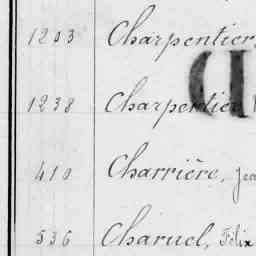 1203 Charpentier,
1238 Charpentier
410 Charrière, Jea
536 Charuel, Félix